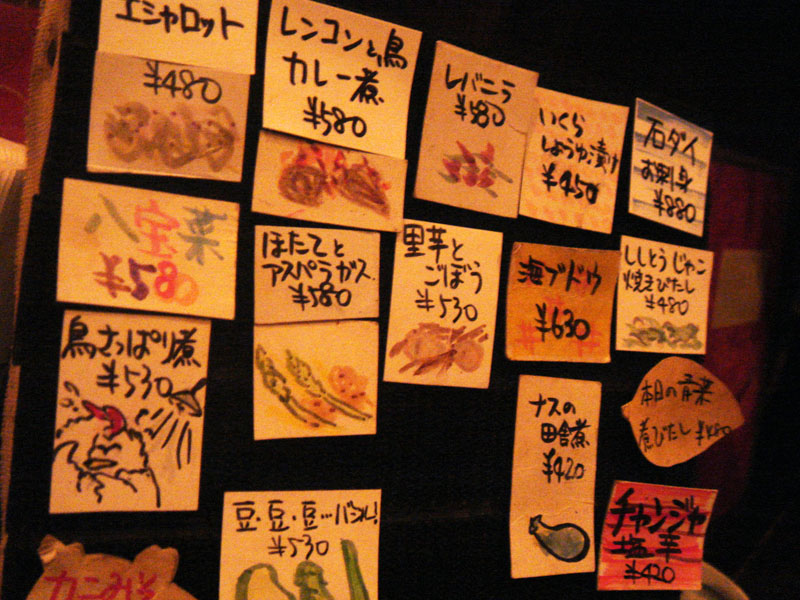 エシャロット
¥480
レンコンと鳥
カレー煮
¥580
レバニラ
¥580
いくら
しょうゆ漬け
¥450
石ダイ
お刺身
¥880
八宝菜
¥580
ほたてと
アスパラガス
¥580
里芋と
ごぼう
¥530
海ブドウ
¥630
ししとうじゃこ
焼きびたし
¥480
鳥さっぱり煮
¥530
ナスの
田舎煮
¥420
本日の青菜
煮びたし ¥480
豆・豆・豆…バジル!
¥530
チャンジャ
塩辛
¥420
カニみそ